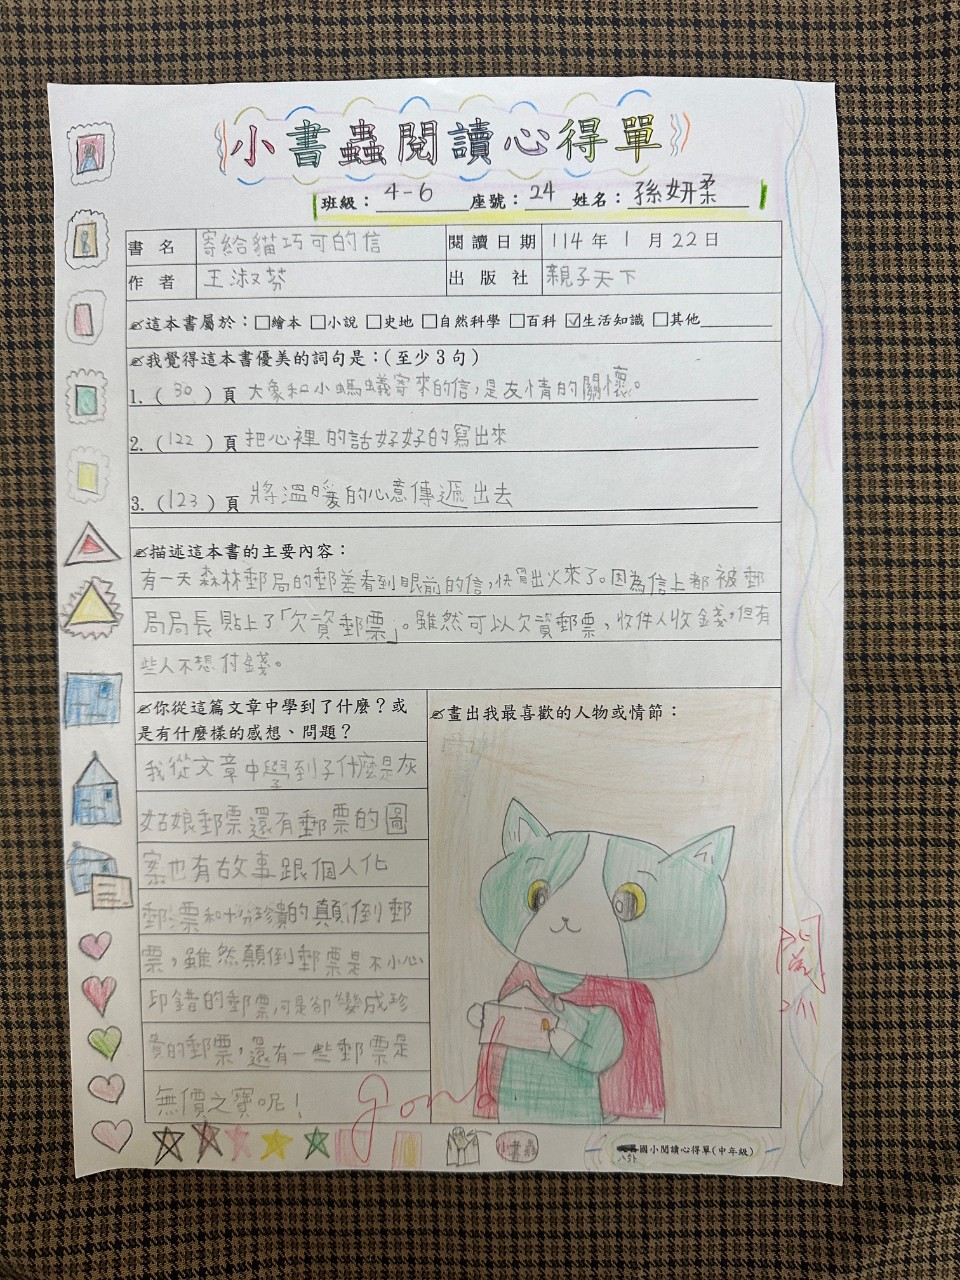 小書蟲閱讀心得單
班級：4-6 座號：24 姓名：孫妍柔
書名 寄給貓巧可的信 閱讀日期 114年1月22日
作者 王淑芬 出版社 親子天下
這本書屬於：□繪本 □小說 □史地 □自然科學 □百科 ☑生活知識 □其他
我覺得這本書優美的詞句是：(至少3句)
1.(30)頁 大象和小螞蟻寄來的信，是友情的關懷。
2.(122)頁 把心裡的話好好的寫出來
3.(123)頁 將溫暖的心意傳遞出去
描述這本書的主要內容：
有一天森林郵局的郵差看到眼前的信，快冒出火來了。因為信上都被郵
局局長貼上了「欠資郵票」。雖然可以欠資郵票，收件人收錢，但有
些人不想付錢。
你從這篇文章中學到了什麼？或
是有什麼樣的感想、問題？
我從文章中學到了什麼是灰
姑娘郵票還有郵票的圖
案也有故事跟個人化
郵票和十分珍貴的顛倒郵
票，雖然顛倒郵票是不小心
印錯的郵票，可是卻變成珍
貴的郵票，還有一些郵票是
無價之寶呢！
畫出我最喜歡的人物或情節：
good
閱
小書蟲
八卦國小閱讀心得單(中年級)